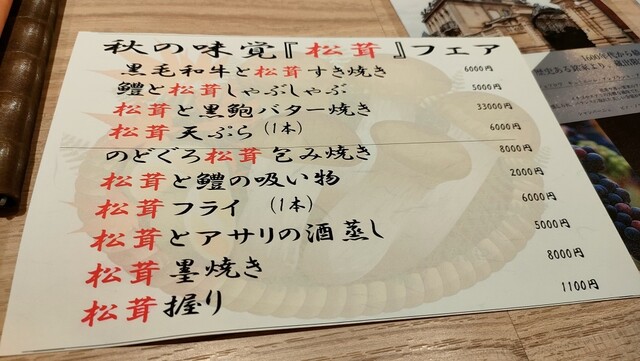 秋の味覚『松茸』フェア
黒毛和牛と松茸すき焼き 6000円
鱧と松茸しゃぶしゃぶ 5000円
松茸と黒鮑バター焼き 33000円
松茸天ぷら(1本) 6000円
のどぐろ松茸包み焼き 8000円
松茸と鱧の吸い物 2000円
松茸フライ (1本) 6000円
松茸とアサリの酒蒸し 5000円
松茸墨焼き 8000円
松茸握り 1100円